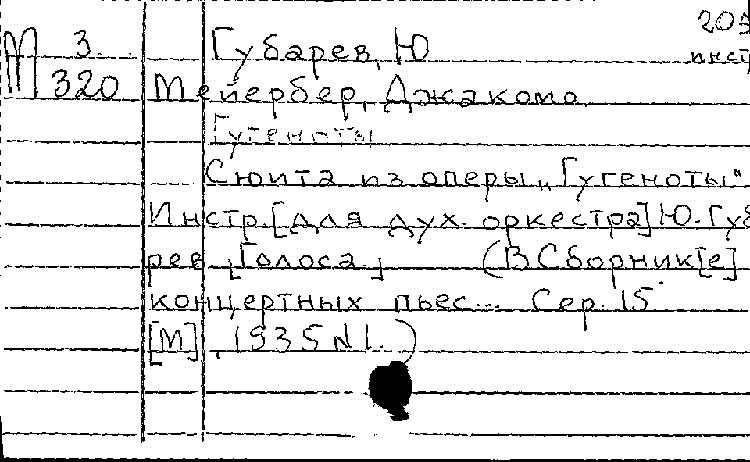 203
М 3. Губарев, Ю инст
320 Мейербер, Джакомо
Гугеноты
Сюита из оперы „Гугеноты"
Инстр. [для дух. оркестра] Ю. Губа
рев [Голоса] (В Сборник[е]
концертных пьес... Сер. 15.
[М], 1935 №1.)